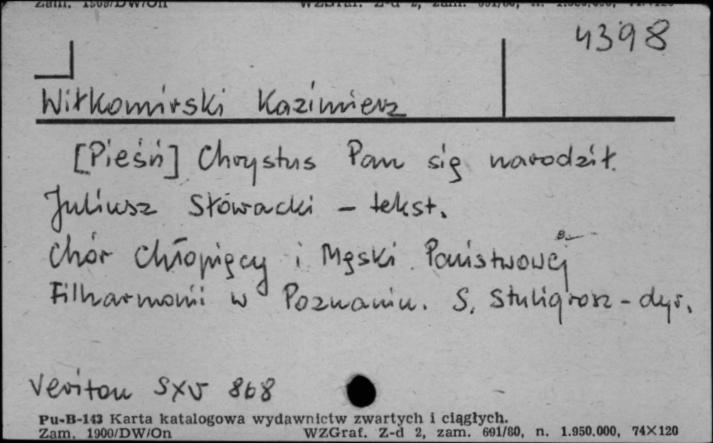 4398
Wiłkomirski Kazimierz
[Pieśń] Chrystus Pan się narodził.
Juliusz Słowacki – tekst.
Chór Chłopięcy i Męski Państwowej
Filharmonii w Poznaniu. S. Stuligrosz – dyr.
Veriton SXV 868
Pu-B-143 Karta katalogowa wydawnictw zwartych i ciągłych.
Zam. 1900/DW/On WZGraf. Z-d 2, zam. 691/80, n. 1.950.000, 74×120